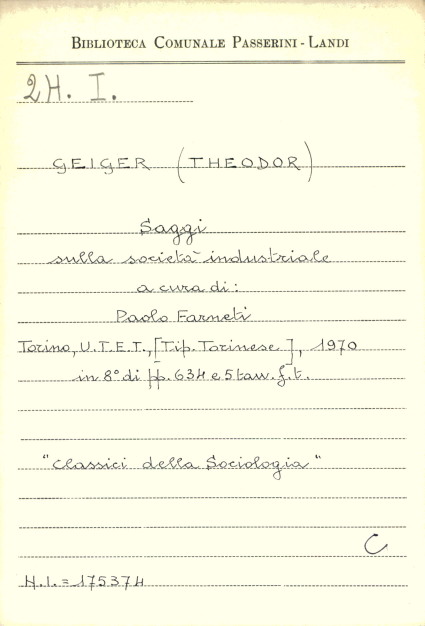 BIBLIOTECA COMUNALE PASSERINI - LANDI
2H. I.
GEIGER (THEODOR)
Saggi
sulla società industriale
a cura di:
Paolo Farneti
Torino, U.T.E.T., [Tip. Torinese], 1970
in 8° di pp. 634 e 5 tav. f.t.
"Classici della Sociologia"
C
N.I. = 175374